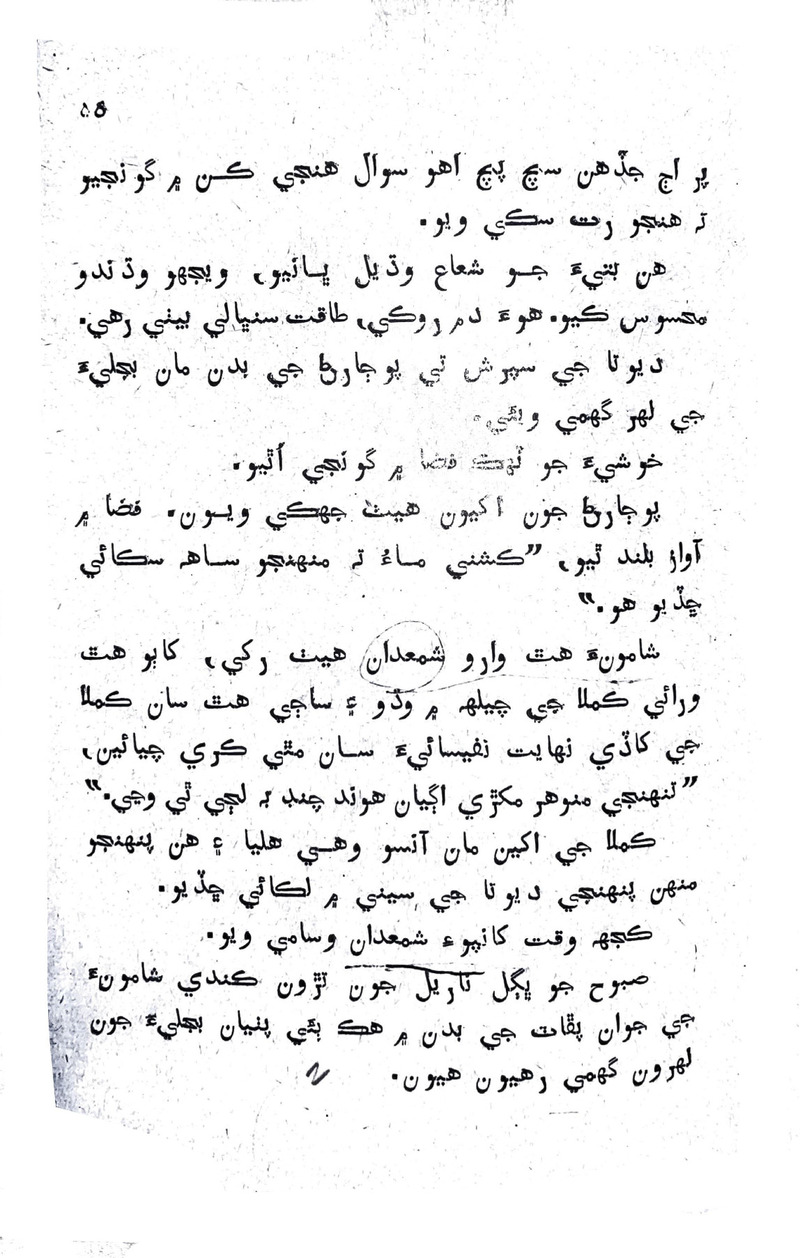 ۵۴
پر اڄ جڏهن سچ پچ اهو سوال هنجي ڪن ۾ گونجيو
ته هنجو رت سڪي ويو.
هن بتيءَ جو شعاع وڌيل ڀانيو، ويجهو وڌندو
محسوس ڪيو. هوءَ دم روڪي، طاقت سنڀالي بيٺي رهي.
ديوتا جي سپرش تي پوڄارڻ جي بدن مان بجليءَ
جي لهر گهمي ويئي.
خوشيءَ جو ٽهڪ فضا ۾ گونجي اُٿيو.
پوڄارڻ جون اکيون هيٺ جهڪي ويون. فضا ۾
آواز بلند ٿيو، ”ڪشني ماءُ ته منهنجو ساهه سڪائي
ڇڏيو هو.“
شامونءَ هٿ وارو شمعدان هيٺ رکي، کاٻو هٿ
ورائي ڪملا جي چيلهه ۾ وڌو ۽ ساڄي هٿ سان ڪملا
جي کاڏي نهايت نفيسائيءَ سان مٿي ڪري چيائين،
”تنهنجي منوهر مکڙي اڳيان هوند چنڊ به لڄي ٿي وڃي.“
ڪملا جي اکين مان آنسو وهي هليا ۽ هن پنهنجو
منهن پنهنجي ديوتا جي سيني ۾ لڪائي ڇڏيو.
ڪجهه وقت کانپوءِ شمعدان وسامي ويو.
صبوح جو ڀڳل ناريل جون ٽڙون ڪندي شامونءَ
جي جوان پڦات جي بدن ۾ هڪ ٻئي پٺيان بجليءَ جون
لهرون گهمي رهيون هيون.